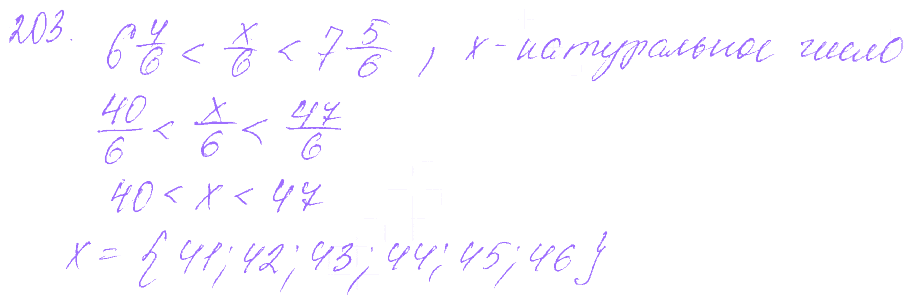 203. 6 4/6 < x/6 < 7 5/6 , x - натуральное число
40/6 < x/6 < 47/6
40 < x < 47
x = {41; 42; 43; 44; 45; 46}